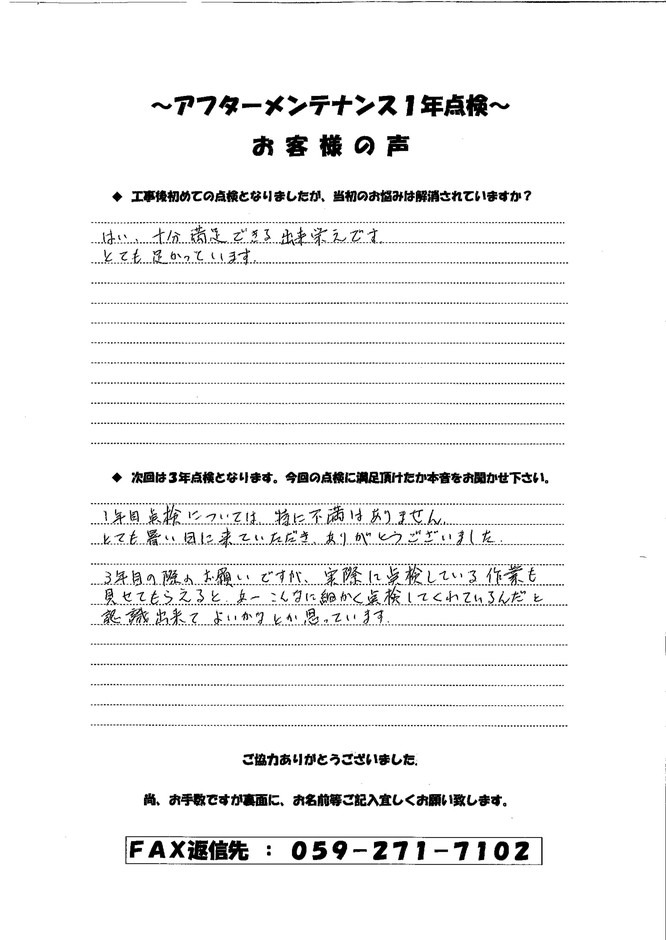 ～アフターメンテナンス1年点検～
お客様の声
◆ 工事後初めての点検となりましたが、当初のお悩みは解消されていますか？
はい、十分満足できる出来栄えです。
とても足かっています。
◆ 次回は3年点検となります。今回の点検に満足頂けたか本音をお聞かせ下さい。
1年目点検については、特に不満はありません。
とても暑い日に来ていただき、ありがとうございました。
3年目の際のお願いですが、実際に点検している作業も
見せてもらえると、あー こんなに細かく点検してくれているんだと
認識出来て よいかなとか思っています。
ご協力ありがとうございました。
尚、お手数ですが裏面に、お名前等ご記入宜しくお願い致します。
FAX返信先 : 059-271-7102